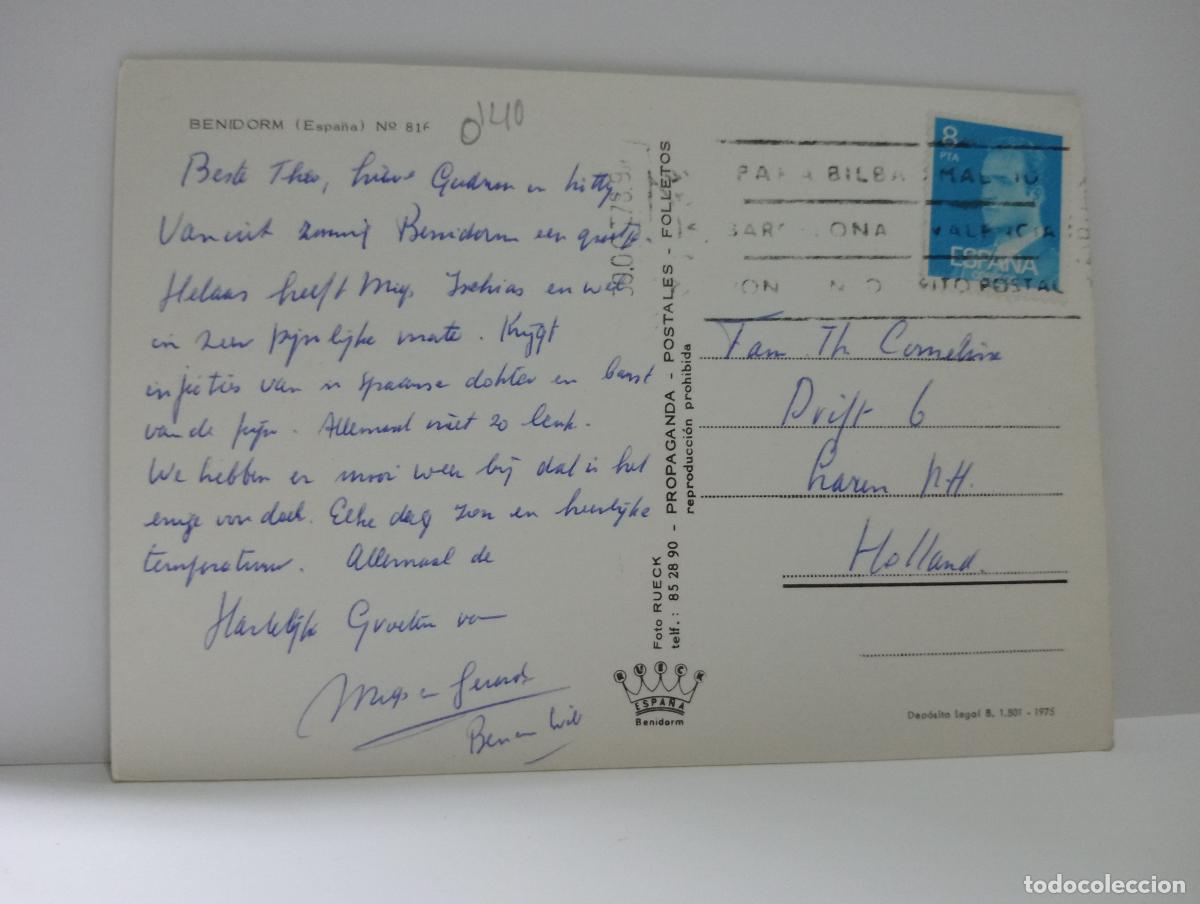 BENIDORM (España) Nº 816
0'40
Beste Theo, lieve Gudrun en Kitty
Vanuit zonnig Benidorm een groetje.
Helaas heeft Mies Ischias en wel
in zeer pijnlijke mate. Krijgt
injeties van 'n Spaanse dokter en barst
van de pijn. Allemaal niet zo leuk.
We hebben er mooi weer bij dat is het
enige voordeel. Elke dag zon en heerlijke
temperatuur. Allemaal de
Hartelijke Groeten van
Mies en Gerard
Ben en Wil
Foto RUECK - PROPAGANDA - POSTALES - FOLLETOS
telf.: 85 28 90 reproducción prohibida
RUECK
ESPAÑA
Benidorm
8
PTA
ESPAÑA
BILBA
VALENCIA
POSTAL
Fam. Th. Cornelisse
Drift 6
Laren N.H.
Holland.
Depósito Legal B. 1.801 - 1975
todocoleccion